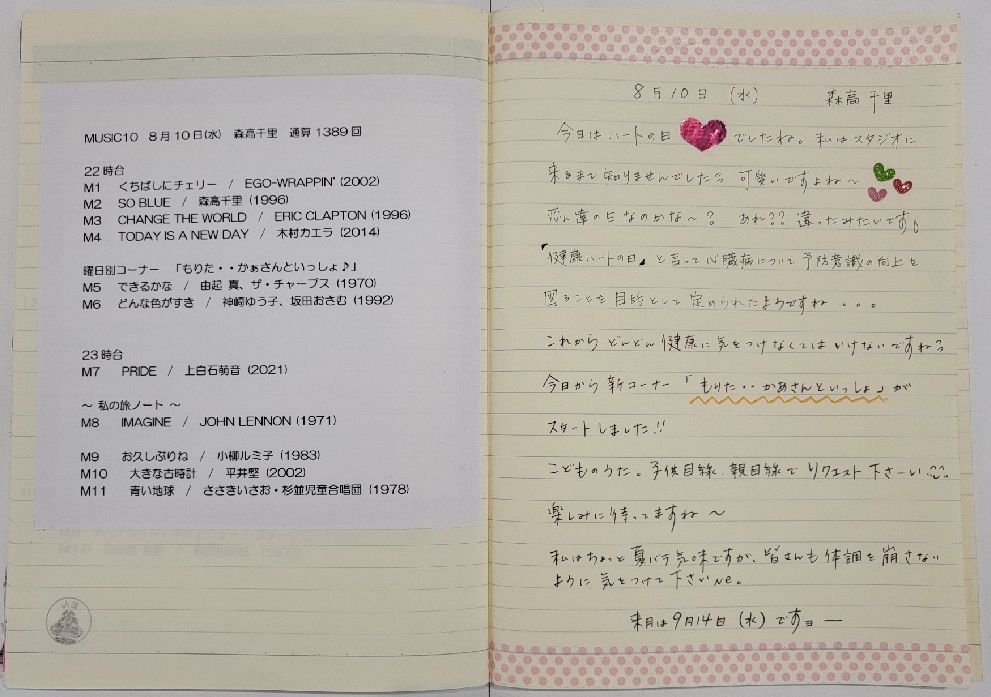 MUSIC10 8月10日(水) 森高千里 通算1389回
22時台
M1 くちばしにチェリー / EGO-WRAPPIN' (2002)
M2 SO BLUE / 森高千里 (1996)
M3 CHANGE THE WORLD / ERIC CLAPTON (1996)
M4 TODAY IS A NEW DAY / 木村カエラ (2014)
曜日別コーナー 「もりた・・かぁさんといっしょ♪」
M5 できるかな / 由起 真、ザ・チャープス (1970)
M6 どんな色がすき / 神崎ゆう子、坂田おさむ (1992)
23時台
M7 PRIDE / 上白石萌音 (2021)
～ 私の旅ノート ～
M8 IMAGINE / JOHN LENNON (1971)
M9 お久しぶりね / 小柳ルミ子 (1983)
M10 大きな古時計 / 平井堅 (2002)
M11 青い地球 / ささきいさお・杉並児童合唱団 (1978)
8月10日 (水) 森高千里
今日はハートの日 でしたね。私はスタジオに
来るまで知りませんでした? 可愛いですよね～
恋人達の日なのかな～? あれ?? 違ったみたいです♪
「健康ハートの日」と言って心臓病について予防意識の向上を
図ることを目的として定められたようですね...
これからどんどん健康に気をつけなくてはいけないですね?
今日から新コーナー「もりた・・かあさんといっしょ」が
スタートしました!!
こどものうた。子供目線、親目線でリクエスト下さーい
楽しみに待ってますね～
私はちょっと夏バテ気味ですが、皆さんも体調を崩さない
ように気をつけて下さいNe。
来月は9月14日(水)ですョー